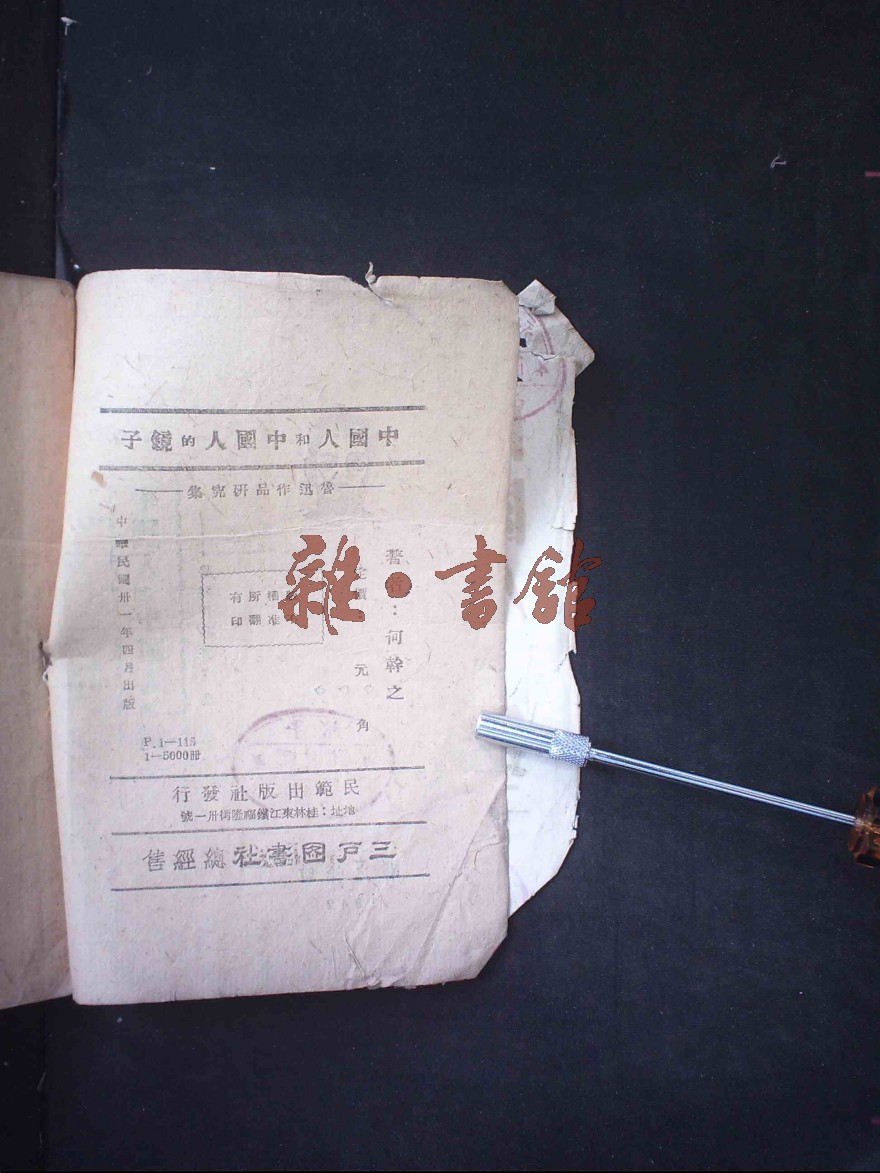 中國人和中國人的鏡子
——魯迅作品研究集——
著者：何幹之
定價 元 角
版權所有
不准翻印
中華民國卅一年四月出版
P.1—115
1—5000冊
民範出版社發行
地址：桂林東江
三戶圖書社總經售
雜·書館